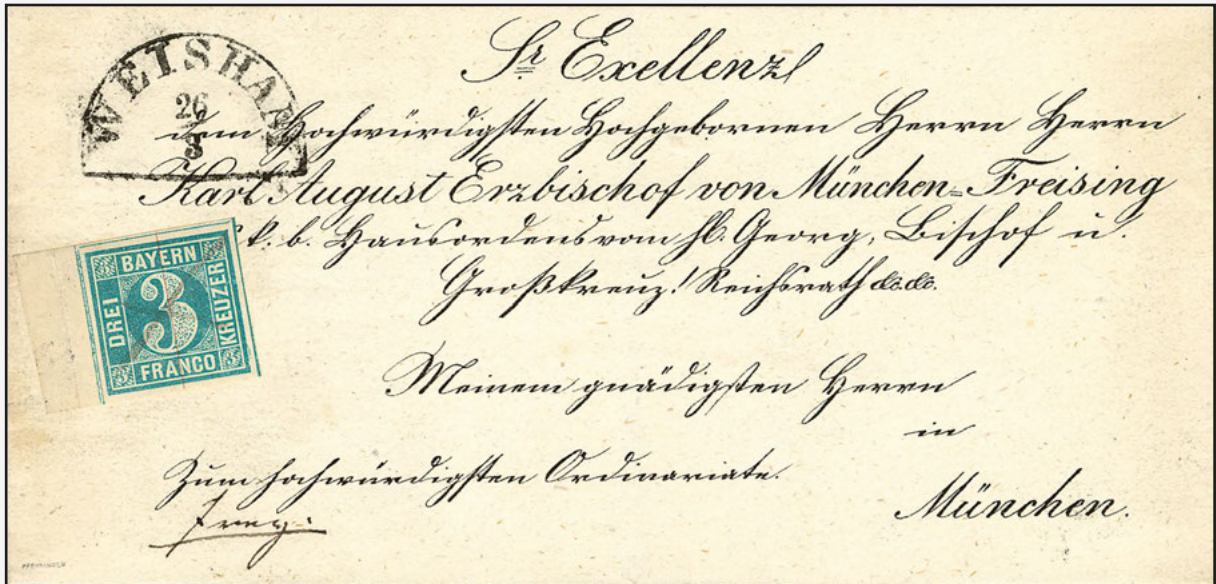 Sr Exellenz
WEISHAM
26
3
dem Hochwürdigsten Hochgebornen Herrn Herrn
Karl August Erzbischof von München-Freising
k. b. Hausordens vom hl. Georg, Bischof u.
Großkreuz! Reichsrath &c. &c.
BAYERN
DREI
3
KREUZER
FRANCO
Meinem gnädigsten Herrn
in
Zum hochwürdigsten Ordinariate.
München.
frey.